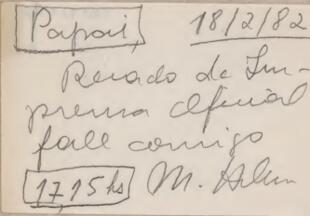 Papai, 18/2/82
Recado da Im-
prensa Oficial
fale comigo
17,15hs M. Helena